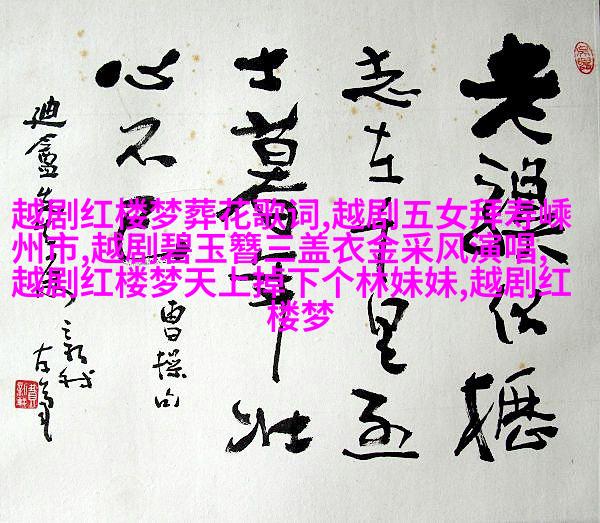 越剧红楼梦葬花歌词,越剧五女拜寿嵊
州市,越剧碧玉簪三盖衣金采风演唱,
越剧红楼梦天上掉下个林妹妹,越剧红
楼梦
老骥伏枥
志在千里烈
士暮年壮
心不已
曹操句